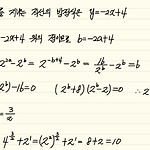 를 지나는 직선의 방정식은 y=-2x+4
-2x+4 위의 점이므로 b=-2a+4
2^{2a}-2^b = 2^{-b+4}-2^b = \frac{16}{2^b}-2^b = 6
2^b)-16=0 (2^b+8)(2^b-2)=0 ∴ 2
= \frac{3}{2}
4^{\frac{3}{2}}+2^1=(2^2)^{\frac{3}{2}}+2^1=8+2=10